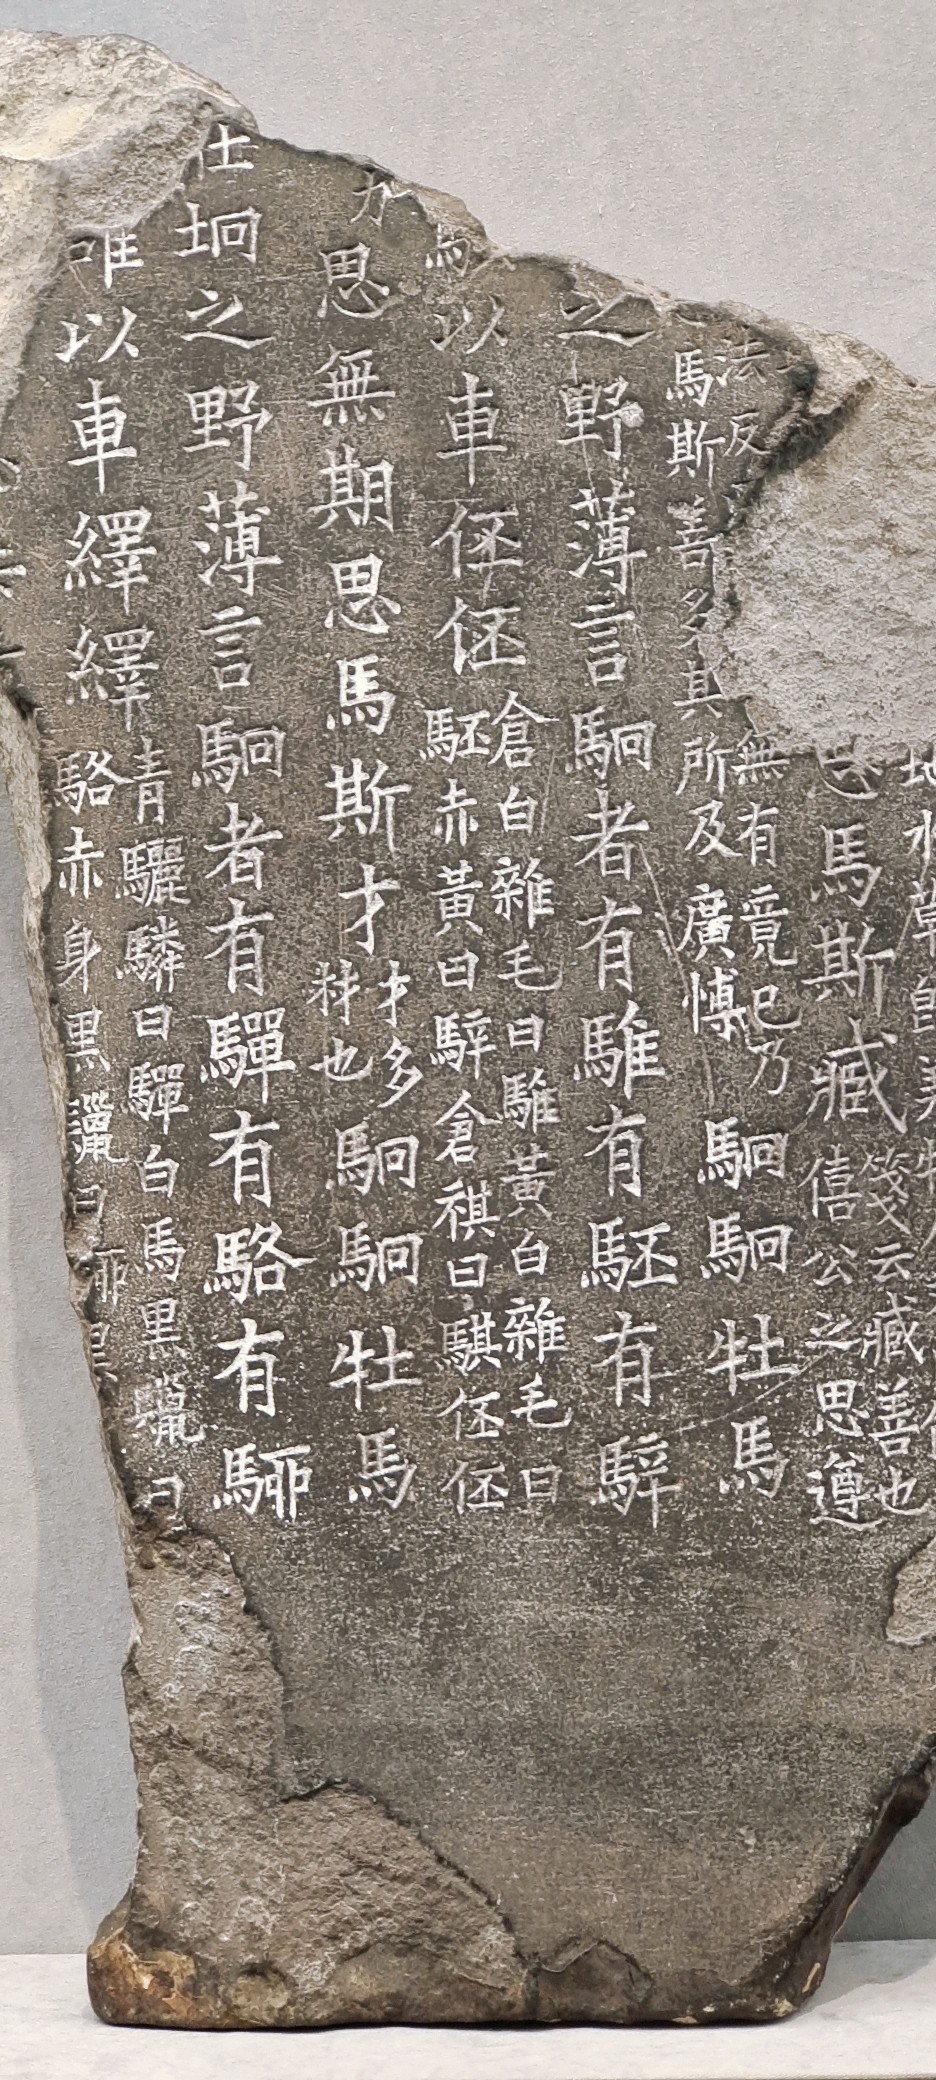 地水草既美牧
思馬斯臧
箋云臧善也
僖公之思遵
法反
無有竟已乃
馬斯善多其所及廣博
駉駉牡馬
之野薄言駉者有騅有駓有騂
以車伾伾
倉白雜毛曰騅黃白雜毛曰
駓赤黃曰騂倉祺曰騏伾伾
力
思無期思馬斯才
才多
材也
駉駉牡馬
在坰之野薄言駉者有驒有駱有駵
以車繹繹
青驪驎曰驒白馬黑鬣曰
駱赤身黑鬣曰駵黑